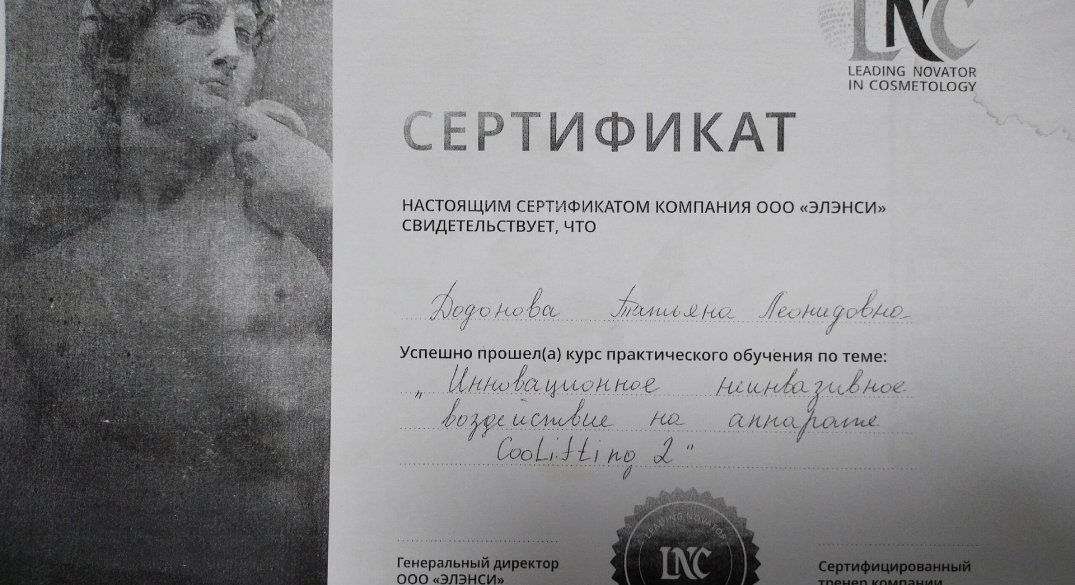 LNC
LEADING NOVATOR
IN COSMETOLOGY
СЕРТИФИКАТ
НАСТОЯЩИМ СЕРТИФИКАТОМ КОМПАНИЯ ООО «ЭЛЭНСИ»
СВИДЕТЕЛЬСТВУЕТ, ЧТО
Додонова Татьяна Леонидовна
Успешно прошел(а) курс практического обучения по теме:
„Инновационное неинвазивное
воздействие на аппарате
CooLifting 2"
LEADING NOVATOR
LNC
Генеральный директор
ООО «ЭЛЭНСИ»
Сертифицированный
тренер компании